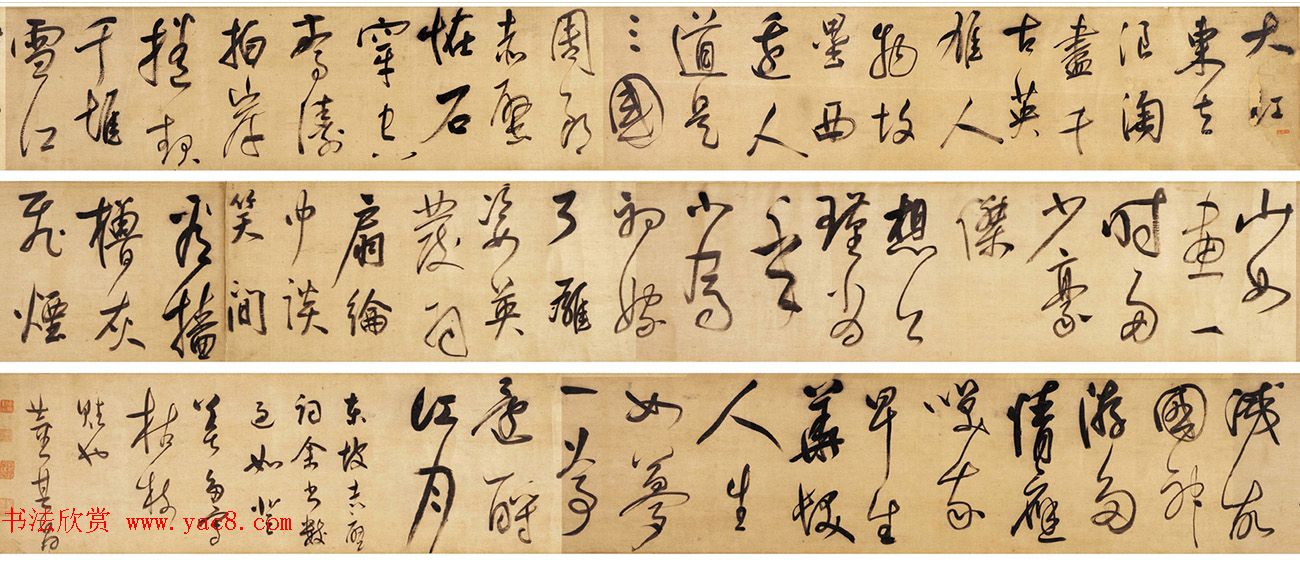 大江
東去
浪淘
盡千
古英
雄人
物故
壘西
邊人
道是
三國
周郎
赤壁
恠石
穿空
驚濤
拍岸
捲起
千堆
雪江
山如
畫一
時多
少豪
傑
想公
瑾當
年
小喬
初嫁
了雄
姿英
發羽
扇綸
巾談
笑間
看檣
櫓灰
飛煙
滅故
國神
游多
情應
笑我
早生
華髮
人生
如夢
一尊
還酹
江月
東坡赤壁
詞余書數
過如登
善
枯樹
賦也
董其昌
书法欣赏 www.yac8.com